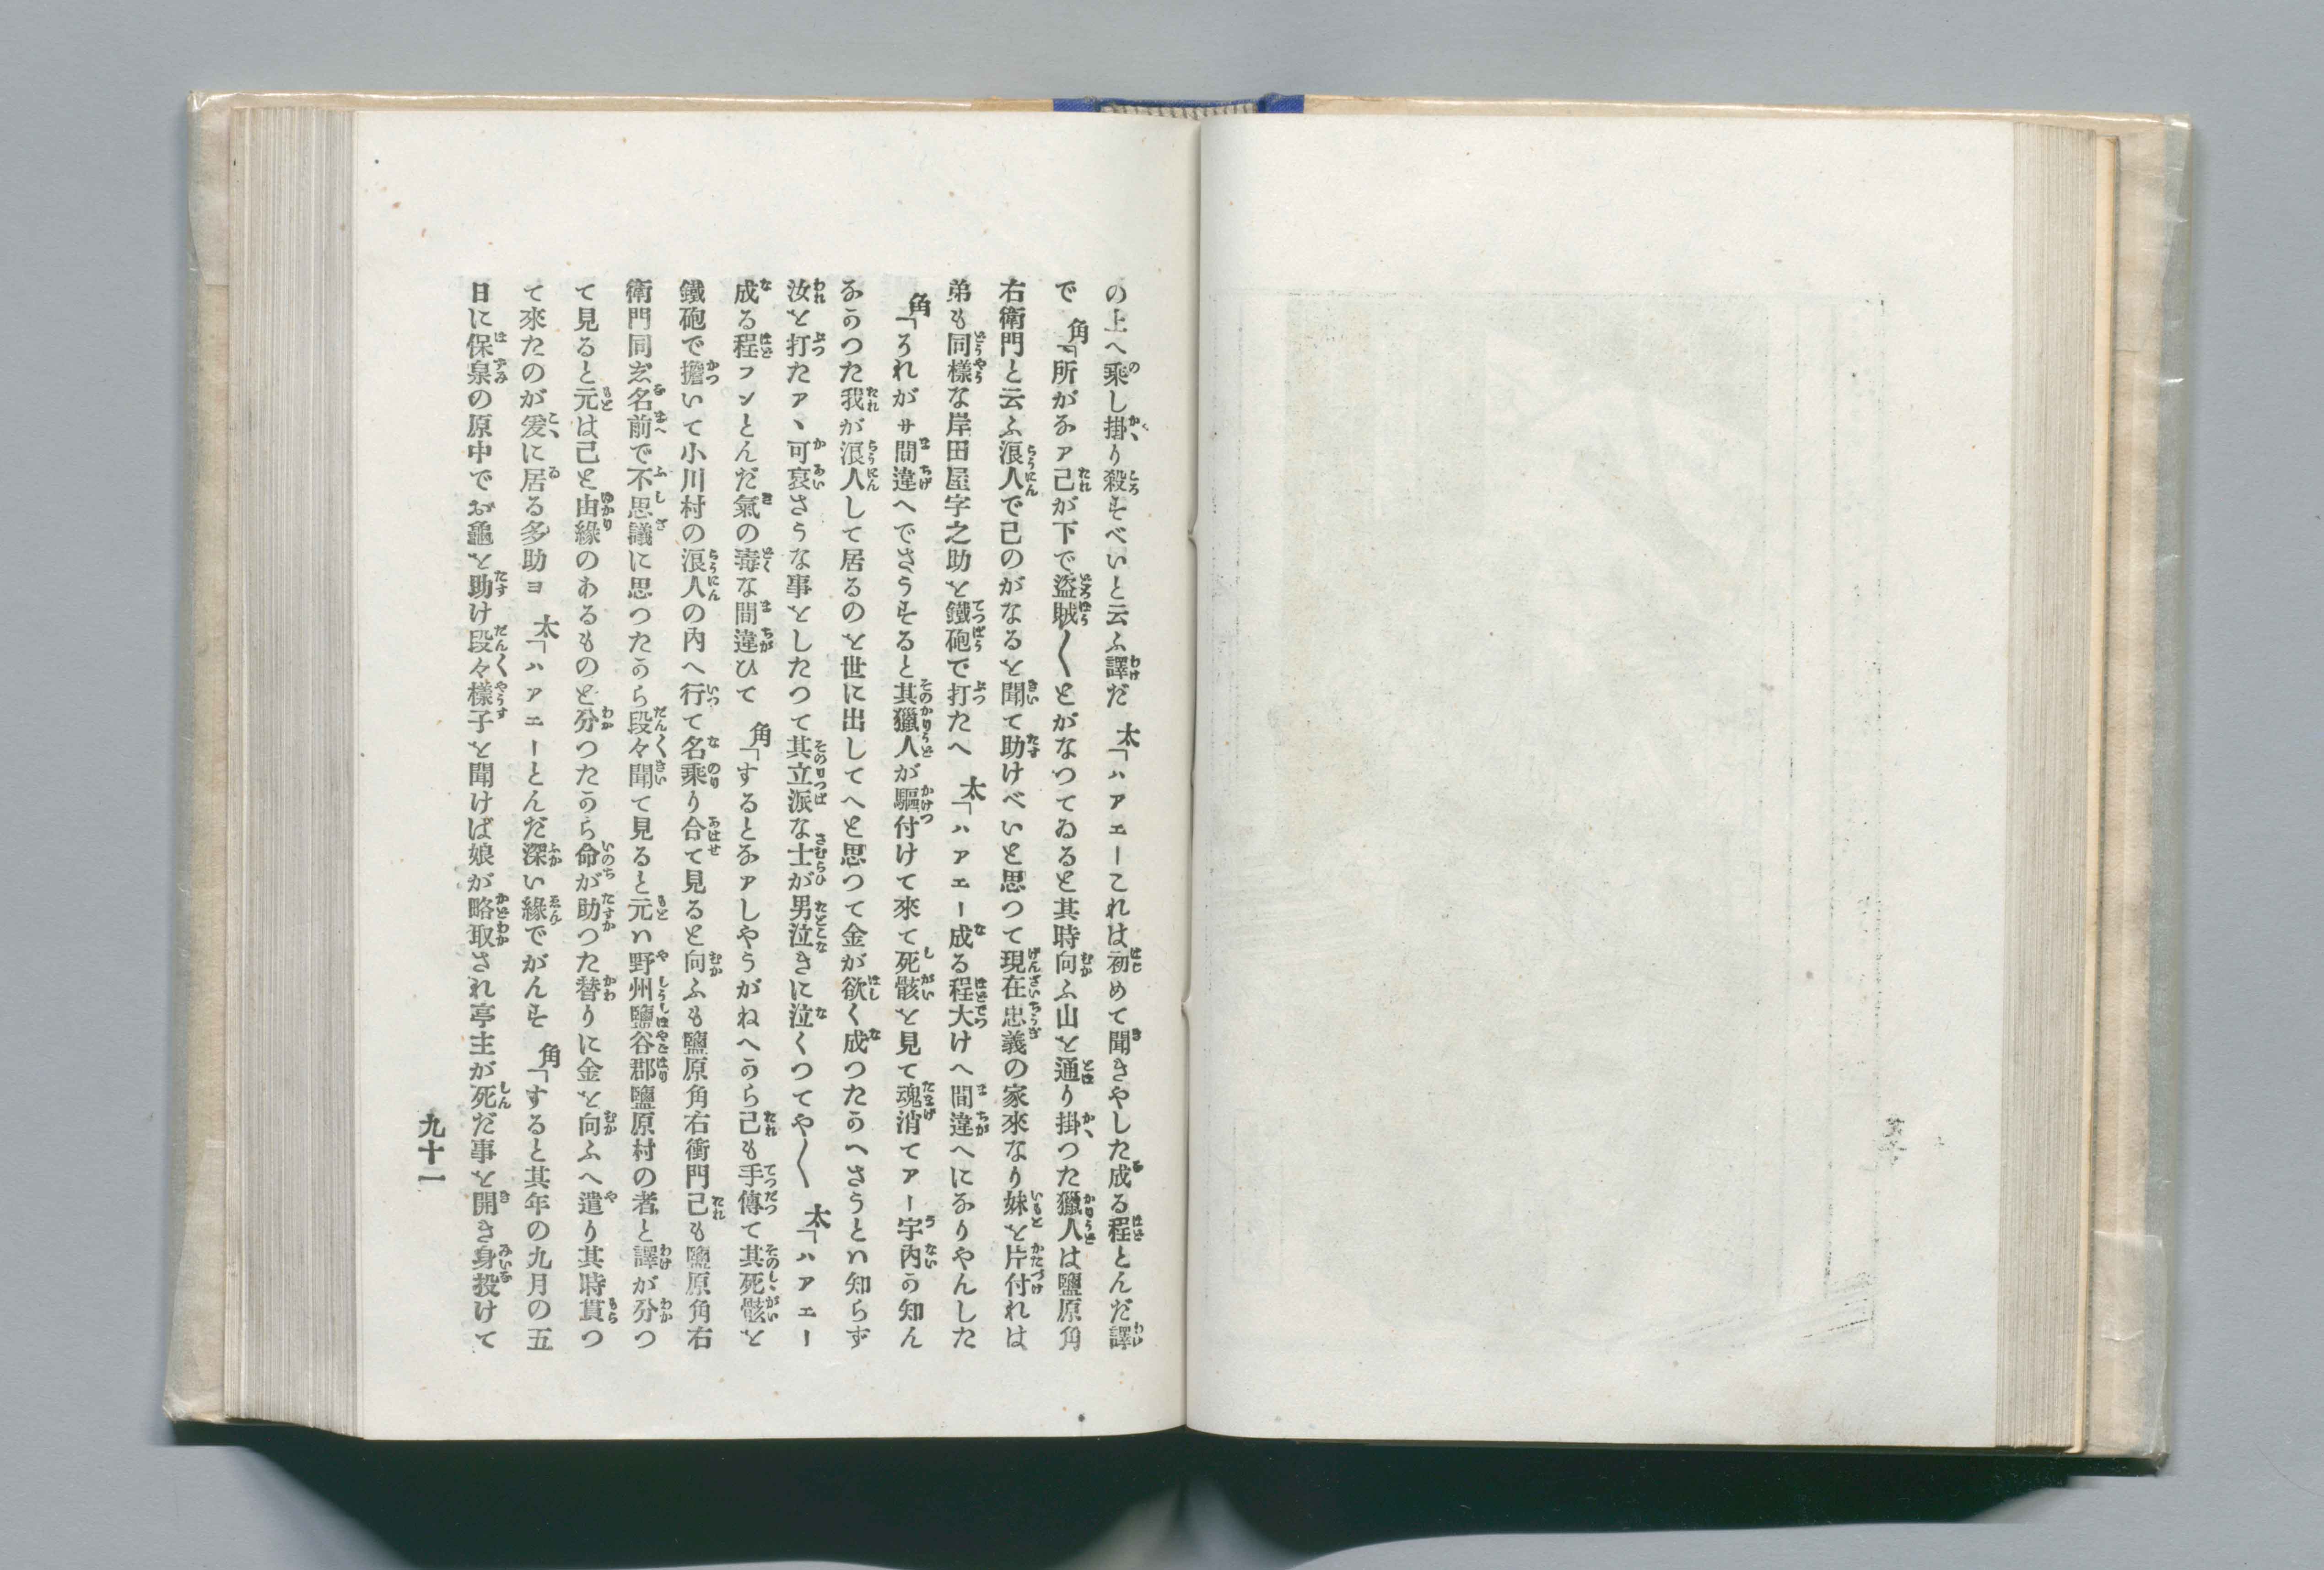 の上へ乘し掛り殺すべいと云ふ譯だ 太「ハアエーこれは初めて聞きやした成る程とんだ譯
で 角「所がなア己が下で盜賊〱とがなつてゐると其時向ふ山を通り掛つた獵人は鹽原角
右衛門と云ふ浪人で己のがなるを聞て助けべいと思つて現在忠義の家來なり妹を片付れは
弟も同樣な岸田屋宇之助を鐵砲で打たへ 太「ハアエー成る程大けへ間違へになりやんした
角「それがサ間違へでさうすると其獵人が驅付けて來て死骸を見て魂消てアー宇内か知ん
なかつた我が浪人して居るのを世に出してへと思つて金が欲く成つたかへさうとハ知らず
汝を打たアヽ可哀さうな事をしたつて其立派な士が男泣きに泣くつてや〱 太「ハアエー
成る程フンとんだ氣の毒な間違ひて 角「するとなアしやうがねへから己も手傳て其死骸を
鐵砲で擔いて小川村の浪人の内へ行て名乘り合て見ると向ふも鹽原角右衝門己も鹽原角右
衛門同志名前で不思議に思つたから段々聞て見ると元ハ野州鹽谷郡鹽原村の者と譯が分つ
て見ると元は己と由緣のあるものと分つたから命が助つた替りに金を向ふへ遣り其時貰つ
て來たのが爰に居る多助ヨ 太「ハアエーとんだ深い緣でがんす 角「すると其年の九月の五
日に保泉の原中でお龜を助け段々樣子を聞けば娘が略取され亭主が死だ事を開き身投けて
九十一